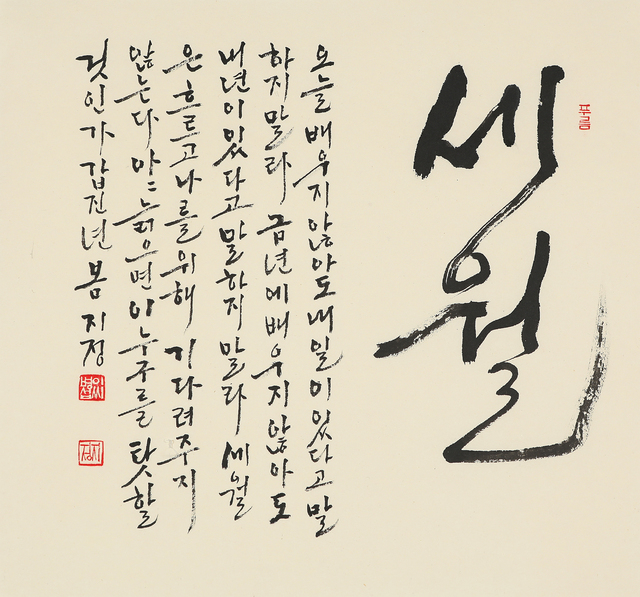 푸름
세월
오늘 배우지 않아도 내일이 있다고 말
하지 말라 금년에 배우지 않아도
내년이 있다고 말하지 말라 세월
은 흐르고 나를 위해 기다려주지
않는다 아〻 늙으면 이 누구를 탓할
것인가 갑진년 봄 지정